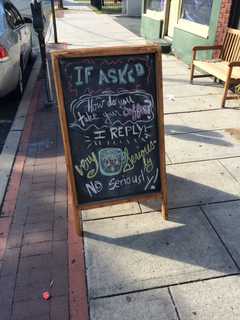 IF ASKED
How do you
take your coffee?
I REPLY!
very Seriously
No Serious!y!